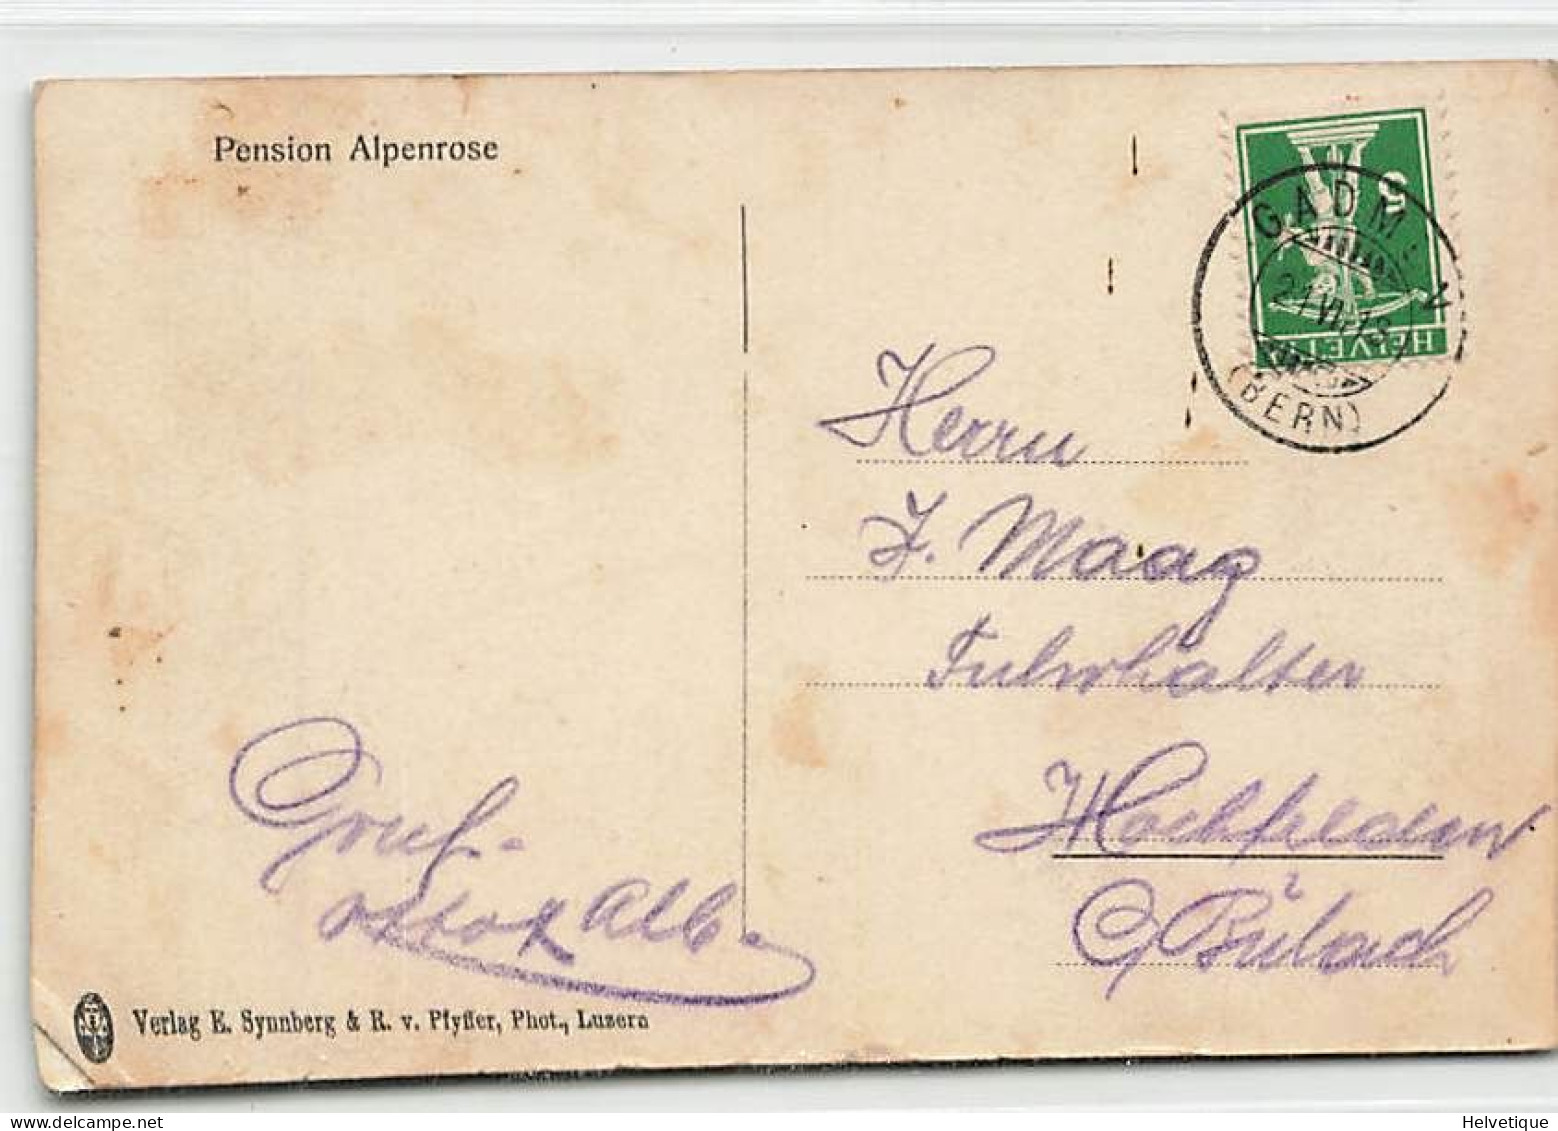 Pension Alpenrose
5
HELVETIA
GADMEN
21 VII 13
(BERN)
Herrn
J. Maag
Fuhrhalter
Hochfelden
Bülach
Gruss.
Alb.
Verlag E. Synnberg & R. v. Pfyffer, Phot., Luzern
Helvetique